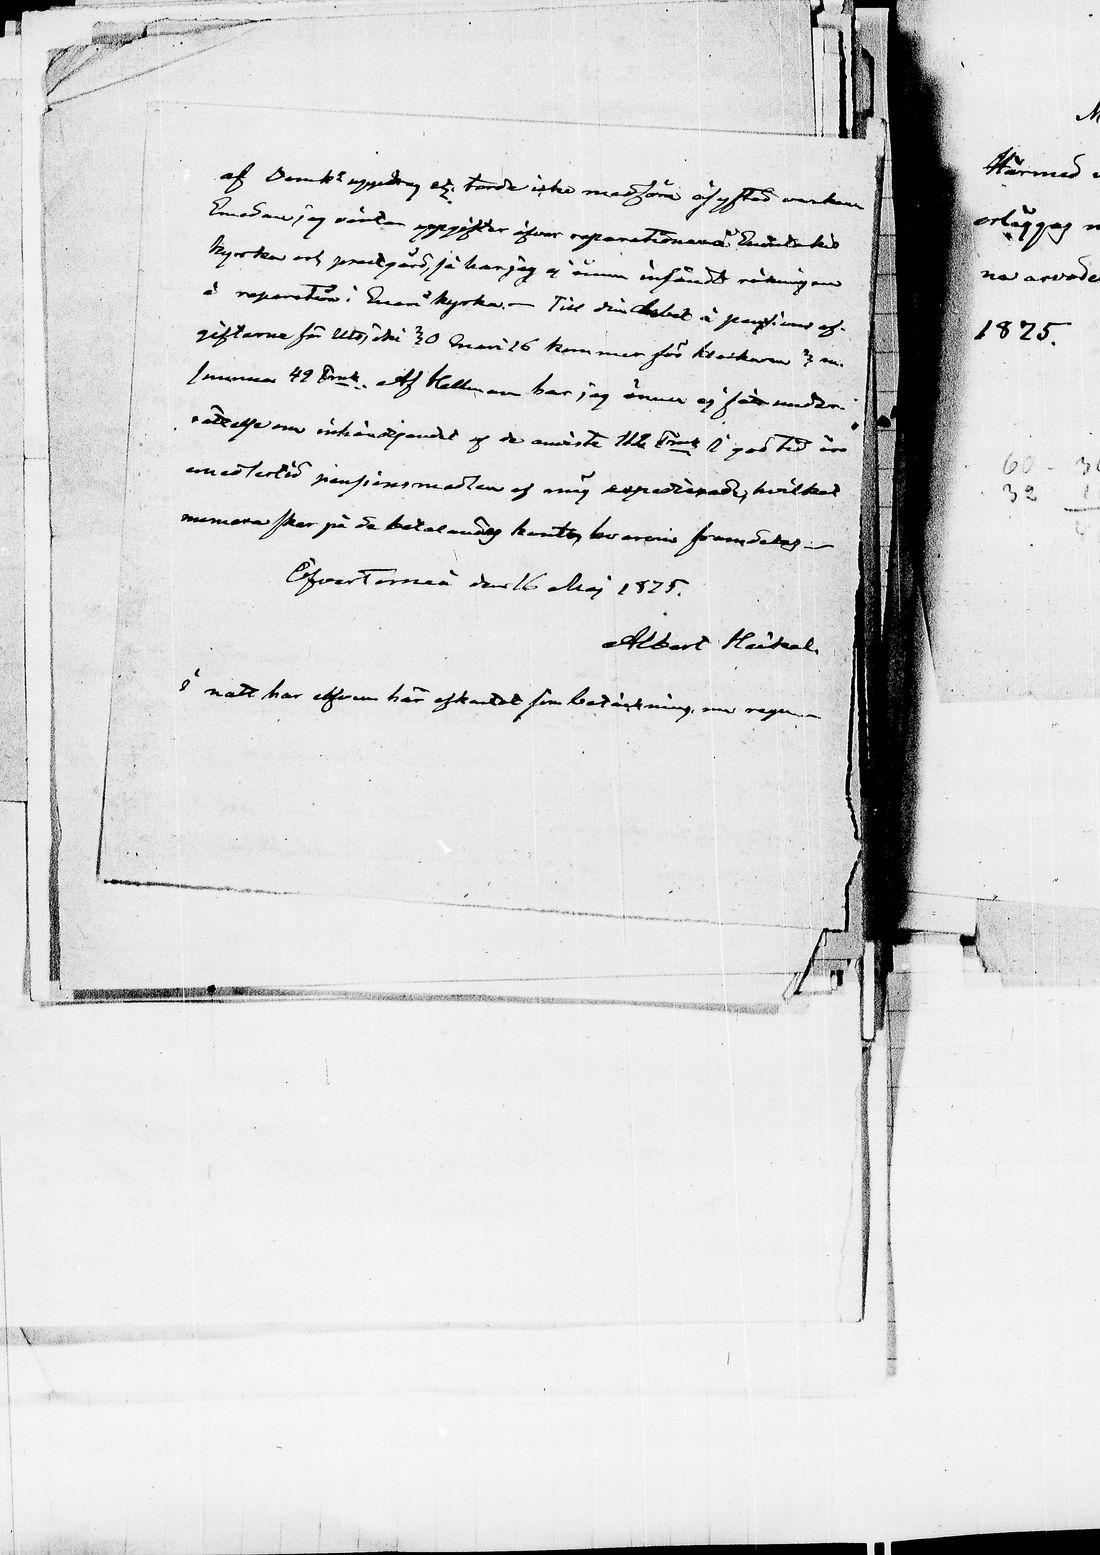 af Domk:s uppdrag etc. torde icke medföra åsyftad verkan
Emedan jag väntar uppgifter öfver reparationerna å Enontekis
kyrka och prestgård, så har jag ej ännu insändt räkningen
å reparation i Enari kyrka. — Till din debet å pensions af-
gifterne för Utsjoki 30 Enari 16 kommer för klockaren 3 m.
summa 49 Fmk. Af Hellman har jag ännu ej fått under-
rättelse om inhändigandet af de anviste 112 Fmk I god tid äro
emedlertid pensionsmedlen af mig expedierade, hvilket
numera sker på de betalandes konto, hvarom framdeles. —
Öfvertorneå den 16 Maj 1875.
Albert Heikel.
I natt har åfven här åskat som betäckning, nu regn —
M
Härmed
erlägges
na arvode
1875.
60 - 30
32